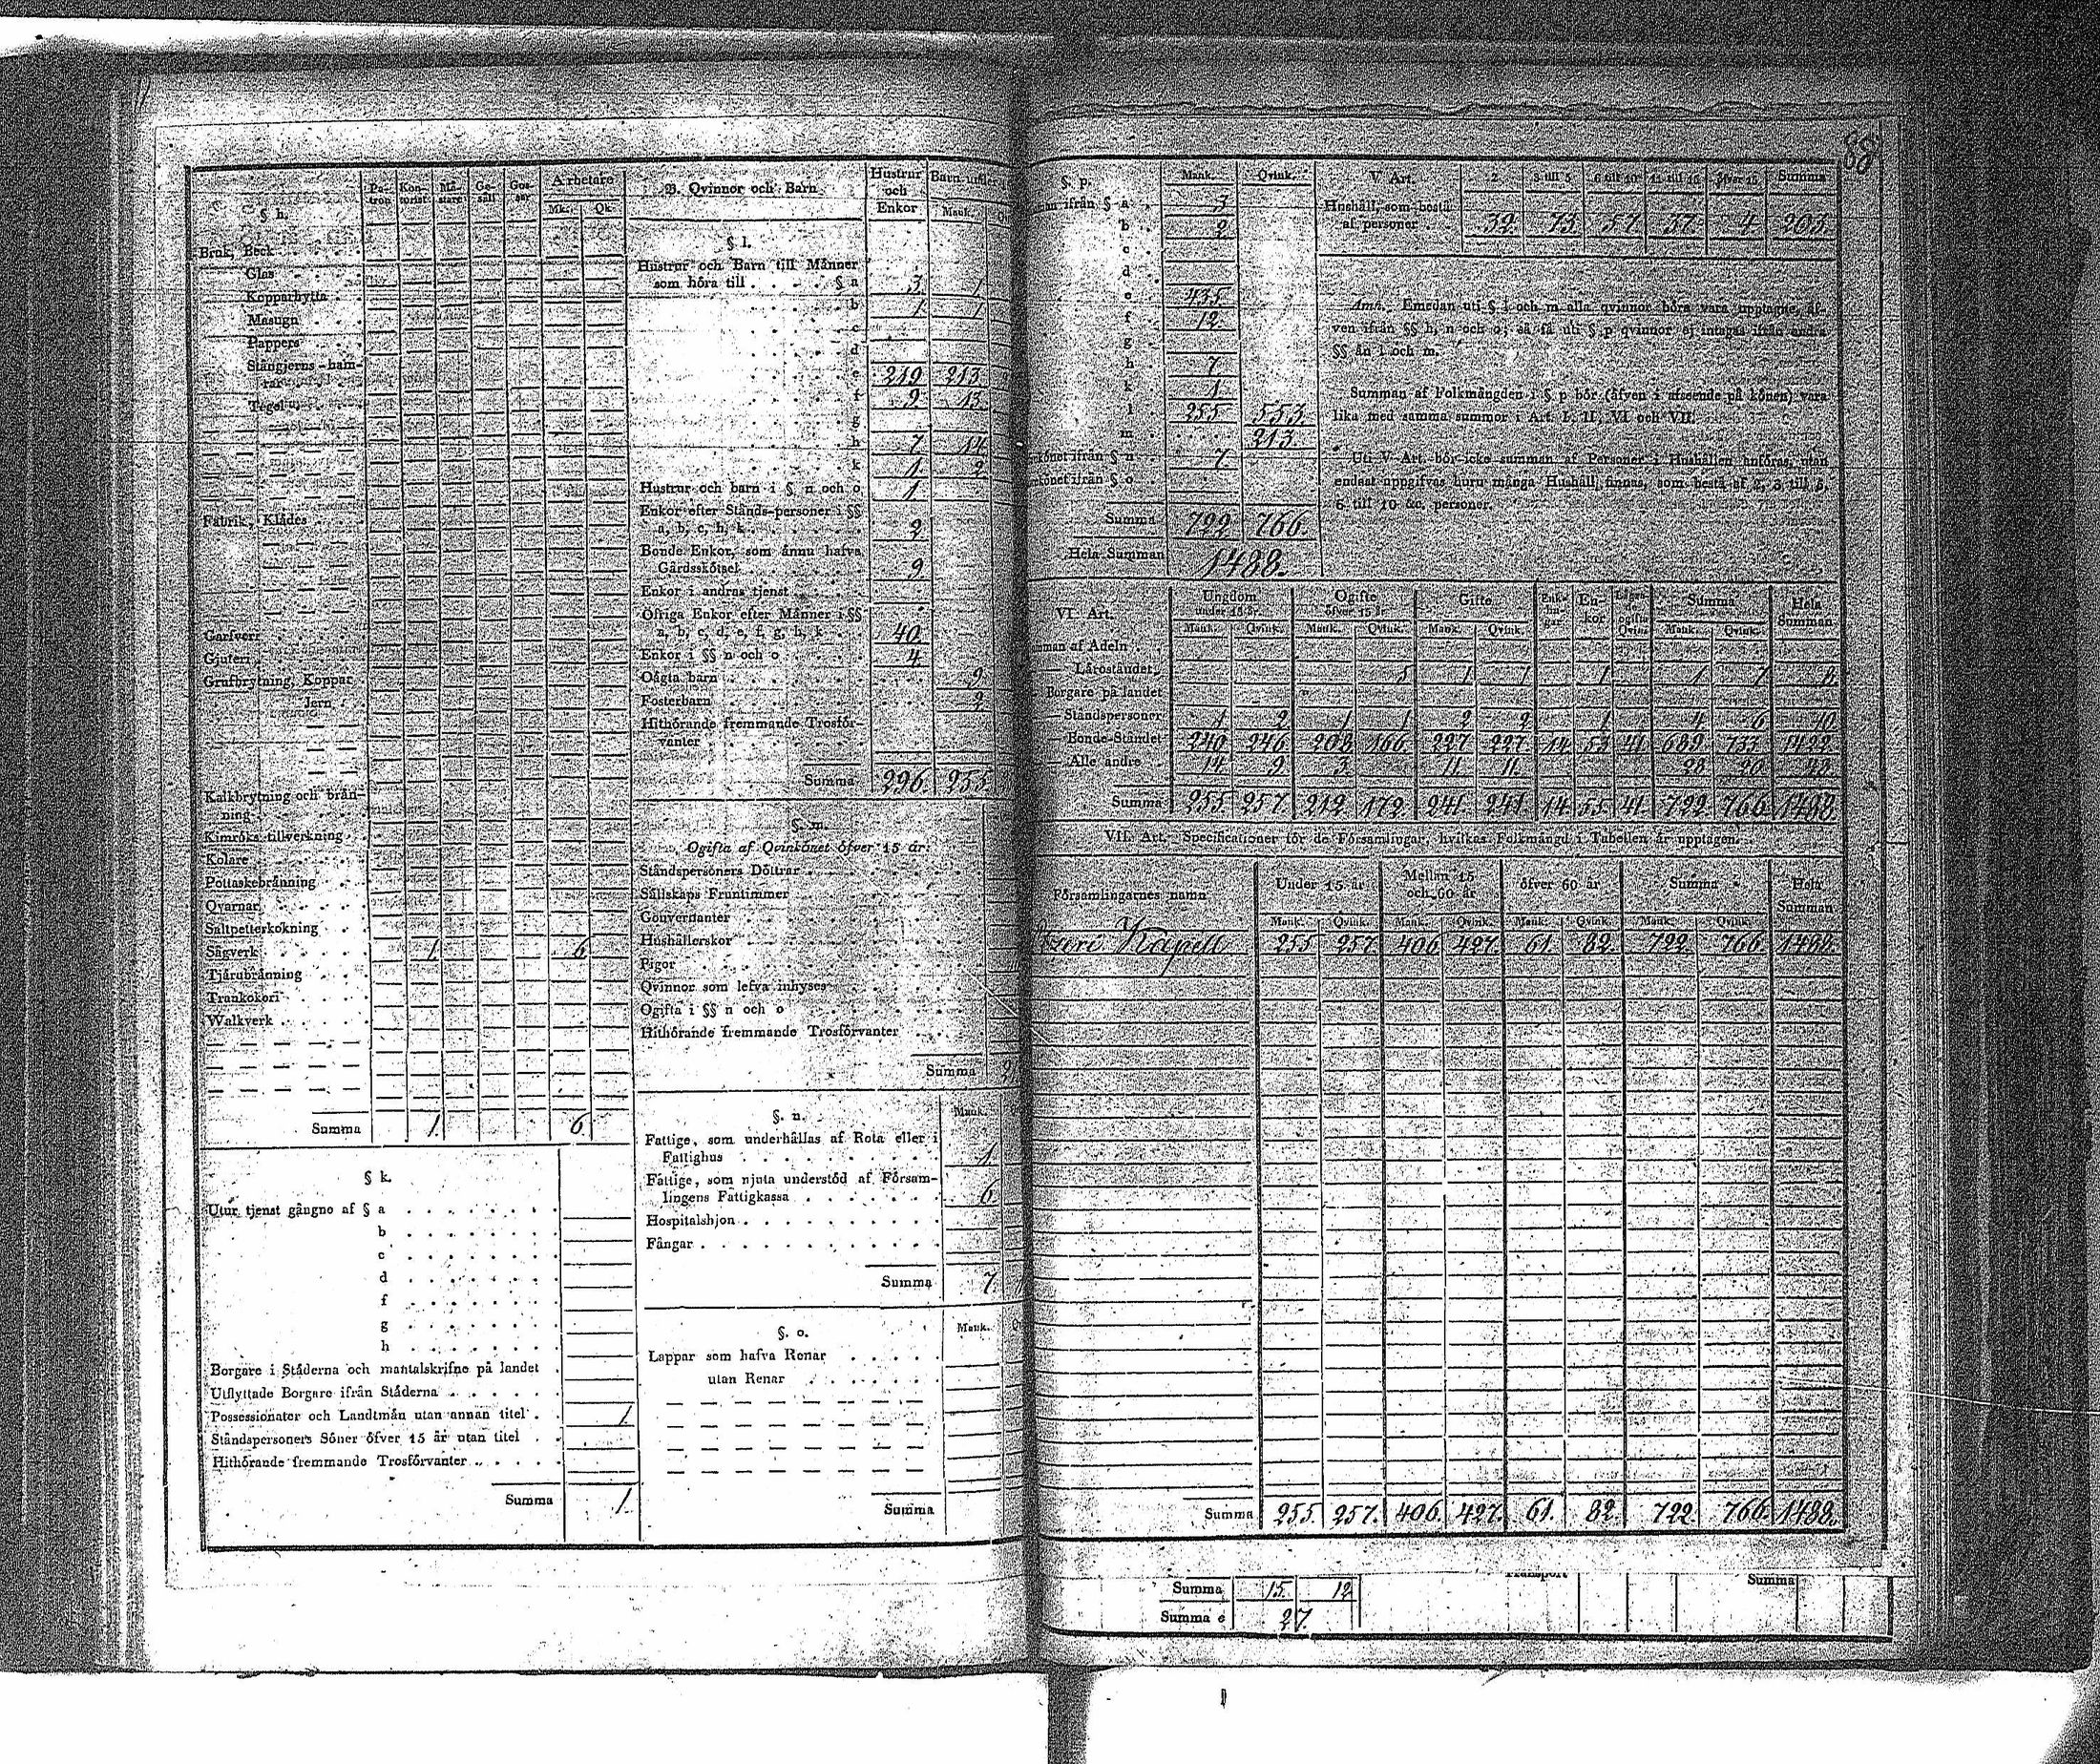 88
§ h.
Pa- tron
Kon- torist
Mä- stare
Ge- säll
Gos- sar
Arbetare
Mk.
Qk.
Bruk, Beck
Glas
Kopparhytta
Masugn
Pappers
Stångjerns-ham-
rar
Tegel
Fabrik, Klädes
Garfveri
Gjuteri
Grufbrytning, Koppar
Jern
Kalkbrytning och brän-
ning
Kimröks tillverkning
Kolare
Pottaskebränning
Qvarnar
Saltpetterkokning
Sågverk 1. 6.
Tjärubränning
Trankokeri
Walkverk
Summa 1. 6.
§ k.
Utur tjenst gångne af § a
b
c
d
f
g
h
Borgare i Städerna och mantalskrifne på landet
Utflyttade Borgare ifrån Städerna
Possessionater och Landtmän utan annan titel 1.
Ståndspersoners Söner öfver 15 år utan titel
Hithörande fremmande Trosförvanter
Summa 1.
B. Qvinnor och Barn
Hustrur och Enkor
Barn under
Mank.
§ l.
Hustrur och Barn till Männer
som höra till § a 3. 1.
b 1. 1.
c
d
e 219. 213.
f 9. 13.
g
h 7. 14.
k 1. 2.
Hustrur och barn i §. n och o 1.
Enkor efter Stånds-personer i §§
a, b, c, h, k 2.
Bonde Enkor, som ännu hafva
Gårdsskötsel 9.
Enkor i andras tjenst
Öfriga Enkor efter Männer i §§
a, b, c, d, e, f, g, h, k 40.
Enkor i §§ n och o 4.
Oägta barn 9.
Fosterbarn 2.
Hithörande fremmande Trosför-
vanter
Summa 296. 255.
§. m.
Ogifta af Qvinkönet öfver 15 år.
Ståndspersoners Döttrar
Sällskaps Fruntimmer
Gouvernanter
Hushållerskor
Pigor
Qvinnor som lefva inhyses
Ogifta i §§ n och o
Hithörande fremmande Trosförvanter
Summa 2
§. n. Mank.
Fattige, som underhållas af Rota eller i
Fattighus 1.
Fattige, som njuta understöd af Försam-
lingens Fattigkassa 6.
Hospitalshjon
Fångar
Summa 7.
§. o. Mank.
Lappar som hafva Renar
utan Renar
Summa
§. p. Mank. Qvink.
ifrån § a 3.
b 2.
c
d
e 435.
f 12.
g
h 7.
k 1.
l 255. 553.
m 213.
könet ifrån § n 7.
könet ifrån § o
Summa 722. 766.
Hela Summan 1488.
V Art. 2 3 till 5 6 till 10 11 till 15 öfver 15 Summa
Hushåll, som bestå
af personer 32. 73. 57. 37. 4. 203.
Anm. Emedan uti § l och m alla qvinnor böra vara upptagne, äf-
ven ifrån §§ h, n och o; så få uti §. p qvinnor ej intagas ifrån andra
§§ än l och m.
Summan af Folkmängden i §. p bör (äfven i afseende på könen) vara
lika med samma summor i Art. I, II, VI och VII.
Uti V Art. bör icke summan af Personer i Hushållen anföras, utan
endast uppgifvas huru många Hushåll finnas, som bestå af 2, 3 till 5,
6 till 10 &c. personer.
VI. Art.
Ungdom under 15 år.
Ogifte öfver 15 år
Gifte
Enk- lin- gar
En- kor
Summa
Hela Summan
Mank. Qvink. Mank. Qvink. Mank. Qvink. Mank. Qvink.
af Adeln
— Läroståndet 5 1 1 1 1 7 8.
Borgare på landet
— Ståndspersoner 1 2 1 1 2 2 1 4 6 10
— Bonde-Ståndet 240 246 208 166 227 227 14 53 41 689 733 1422.
— Alle andre 14. 9 3. 11. 11. 28 20 48.
Summa 255. 257. 212. 172. 241. 241. 14. 55. 41. 722. 766. 1488.
VII. Art. Specificationer för de Församlingar, hvilkas Folkmängd i Tabellen är upptagen.
Församlingarnes namn
Under 15 år
Mellan 15 och 60 år
öfver 60 år
Summa
Hela Summan
Mank. Qvink. Mank. Qvink. Mank. Qvink. Mank. Qvink.
Kapell 255. 257. 406. 427. 61. 82. 722. 766. 1488.
Summa 255. 257. 406. 427. 61. 82. 722. 766. 1488.
Transport
Summa 15. 12. Summa
Summa e 27.